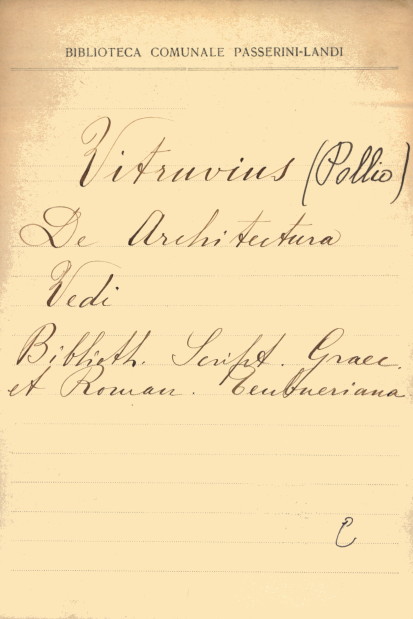 BIBLIOTECA COMUNALE PASSERINI-LANDI
Vitruvius (Pollio)
De Architectura
Vedi
Biblioth. Script. Graec.
et Roman. Teubneriana